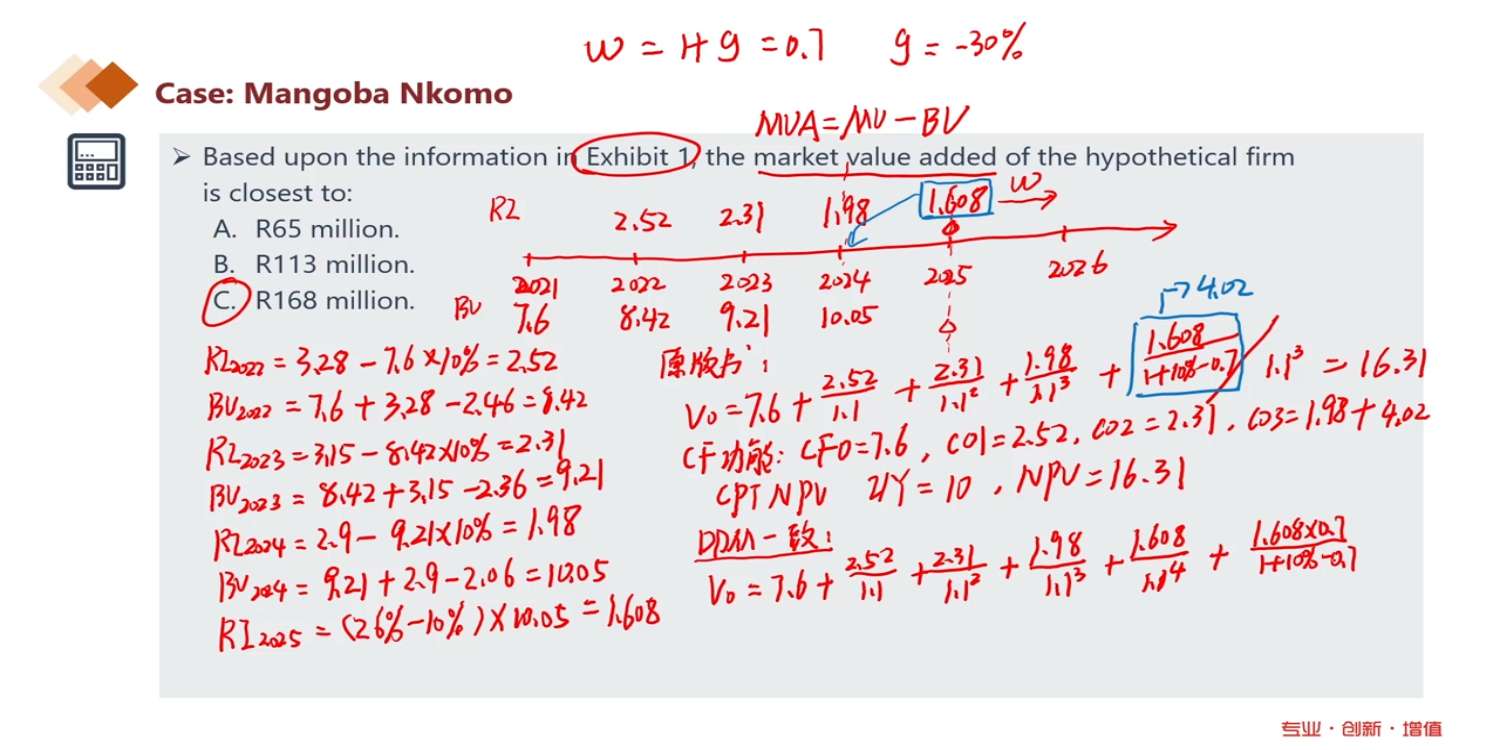 W = 1+g = 0.7 g = -30%
Case: Mangoba Nkomo
MVA = MV - BV
➢ Based upon the information in Exhibit 1, the market value added of the hypothetical firm
is closest to:
A. R65 million.
B. R113 million.
C. R168 million.
RI 2.52 2.31 1.98 1.608 W
2021 2022 2023 2024 2025 2026
BV 7.6 8.42 9.21 10.05
→4.02
RI2022 = 3.28 - 7.6×10% = 2.52
BV2022 = 7.6 + 3.28 - 2.46 = 8.42
RI2023 = 3.15 - 8.42×10% = 2.31
BV2023 = 8.42 + 3.15 - 2.36 = 9.21
RI2024 = 2.9 - 9.21×10% = 1.98
BV2024 = 9.21 + 2.9 - 2.06 = 10.05
RI2025 = (26% - 10%) × 10.05 = 1.608
原版书:
V0 = 7.6 + 2.52/1.1 + 2.31/1.1² + 1.98/1.1³ + 1.608/1+10%-0.7 / 1.1³ = 16.31
CF功能: CF0=7.6, C01=2.52, C02=2.31, C03=1.98+4.02
CPT NPV I/Y=10, NPV=16.31
DDM一致:
V0 = 7.6 + 2.52/1.1 + 2.31/1.1² + 1.98/1.1³ + 1.608/1.1⁴ + 1.608×0.7/1+10%-0.7
专业·创新·增值